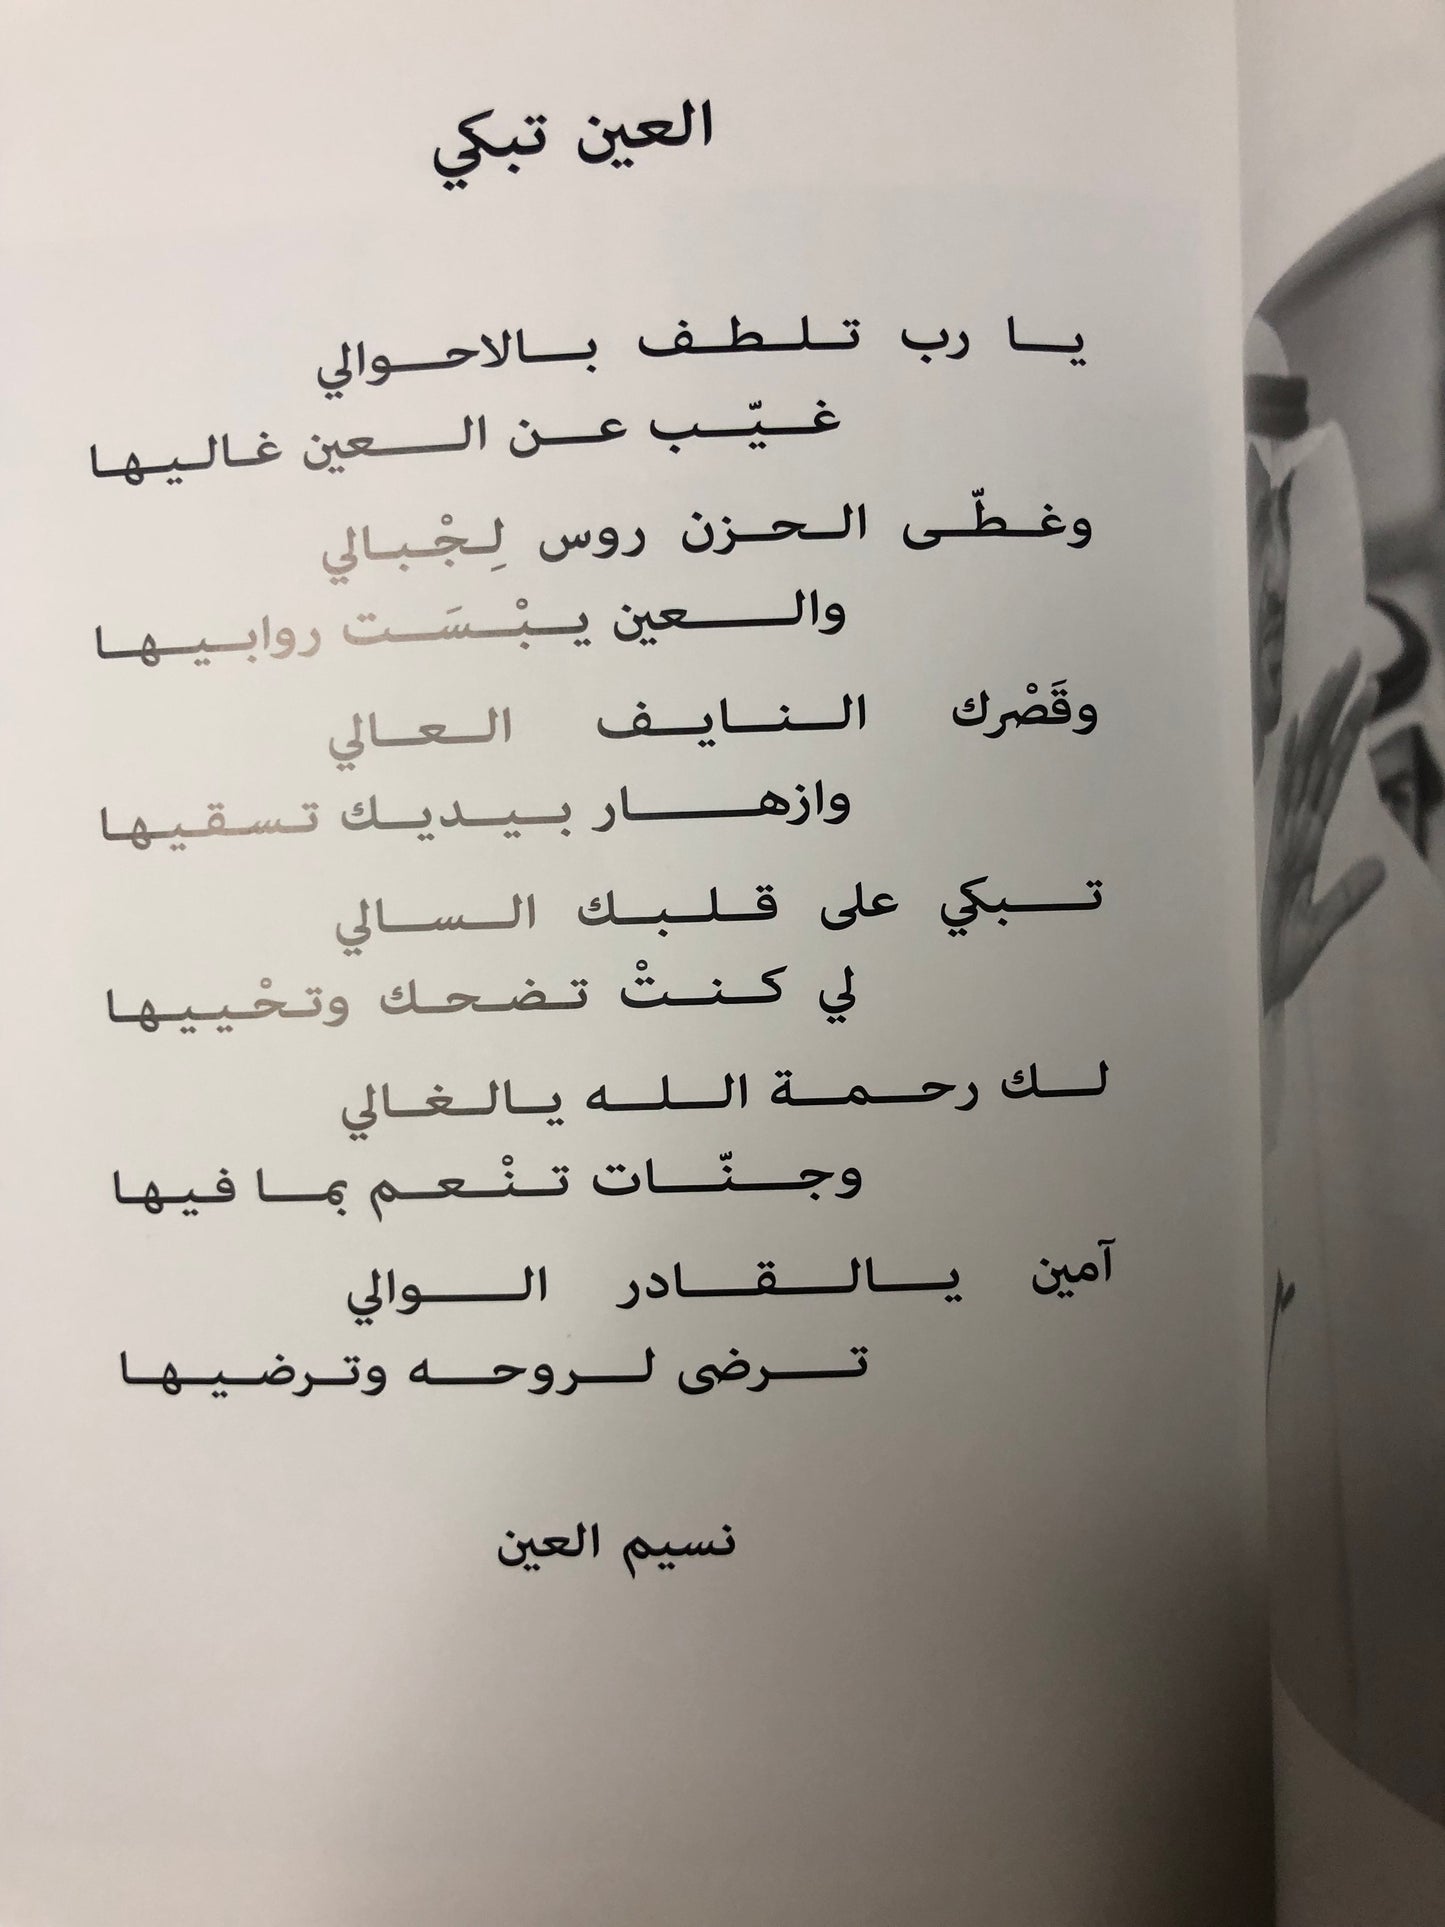 العين تبكي
يا رب تلطف بالاحوالي
غيّب عن العين غاليها
وغطّى الحزن روس لِجْبالي
والعين يبْسَت روابيها
وقَصْرك النايف العالي
وازهار بيديك تسقيها
تبكي على قلبك السالي
لي كنتْ تضحك وتحْييها
لك رحمة الله يالغالي
وجنّات تنْعم بما فيها
آمين يالقادر الوالي
ترضى لروحه وترضيها
نسيم العين